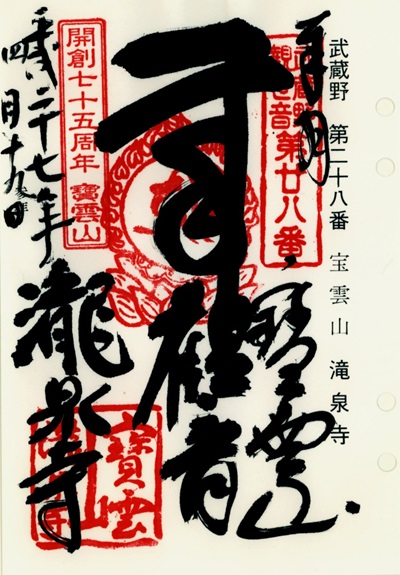 武蔵野 第二十八番 宝雲山 滝泉寺
奉拝
武蔵野
観世音第廿八番
寶雲山
聖観音
開創七十五周年 寶雲山
平成二十七年
四月十九日
瀧泉寺
寶雲